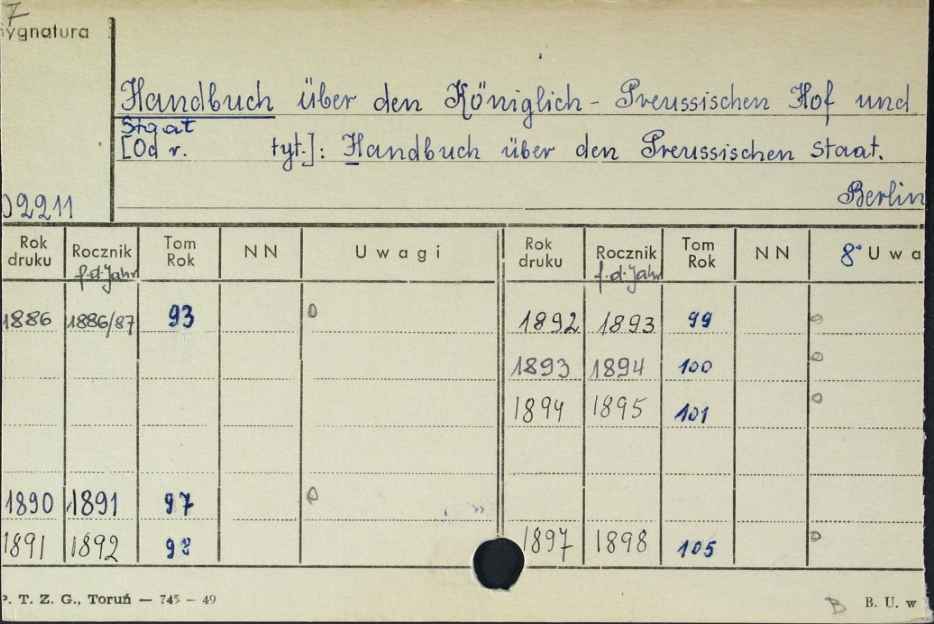 7
Sygnatura
Handbuch über den Königlich - Preussischen Hof und
Staat
[Od r. tyt.]: Handbuch über den Preussischen Staat.
Berlin
02211
Rok druku Rocznik f.d.Jahr Tom Rok NN Uwagi Rok druku Rocznik f.d.Jahr Tom Rok NN 8° Uwa
1886 1886/87 93 1892 1893 99
1893 1894 100
1894 1895 101
1890 1891 97
1891 1892 98 1897 1898 105
P. T. Z. G., Toruń — 745 – 49 B B. U. w